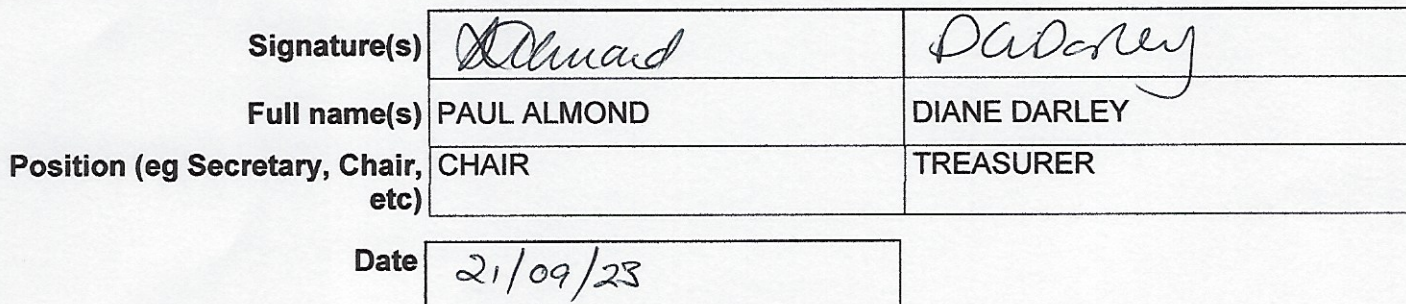 Signature(s) PAlmond DADarley
Full name(s) PAUL ALMOND DIANE DARLEY
Position (eg Secretary, Chair, CHAIR TREASURER
etc)
Date 21/09/23